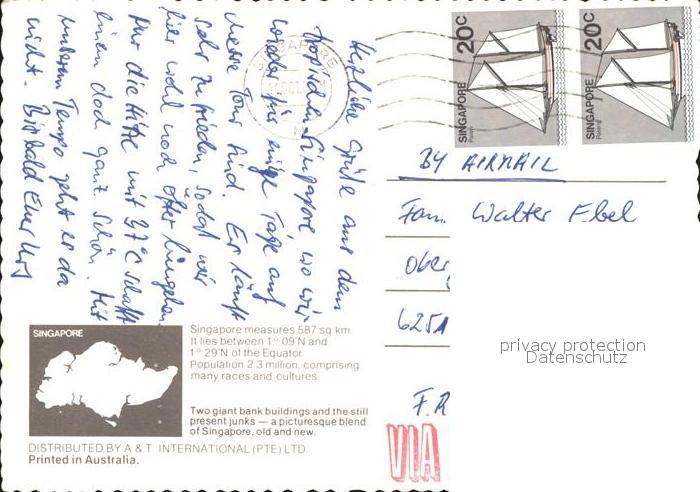 Herzliche Grüße aus dem
tropischen Singapore wo wir
wieder für einige Tage auf
Messe Tour sind. Es läuft
sehr zufrieden, sodaß wir
hier wohl noch öfter hingehen.
Nur die Hitze mit 37°C schafft
einen doch ganz schön. Mit
unserem Tempo geht es da
nicht. Bis bald Euer
SINGAPORE
20c
SINGAPORE
20c
SINGAPORE
BY AIRMAIL
Fam. Walter Ebel
Ober
6251
F.R
VIA
privacy protection
Datenschutz
SINGAPORE
Singapore measures 587 sq km.
It lies between 1° 09'N and
1° 29'N of the Equator.
Population 2.3 million, comprising
many races and cultures.
Two giant bank buildings and the still
present junks — a picturesque blend
of Singapore, old and new.
DISTRIBUTED BY A & T INTERNATIONAL (PTE) LTD.
Printed in Australia.